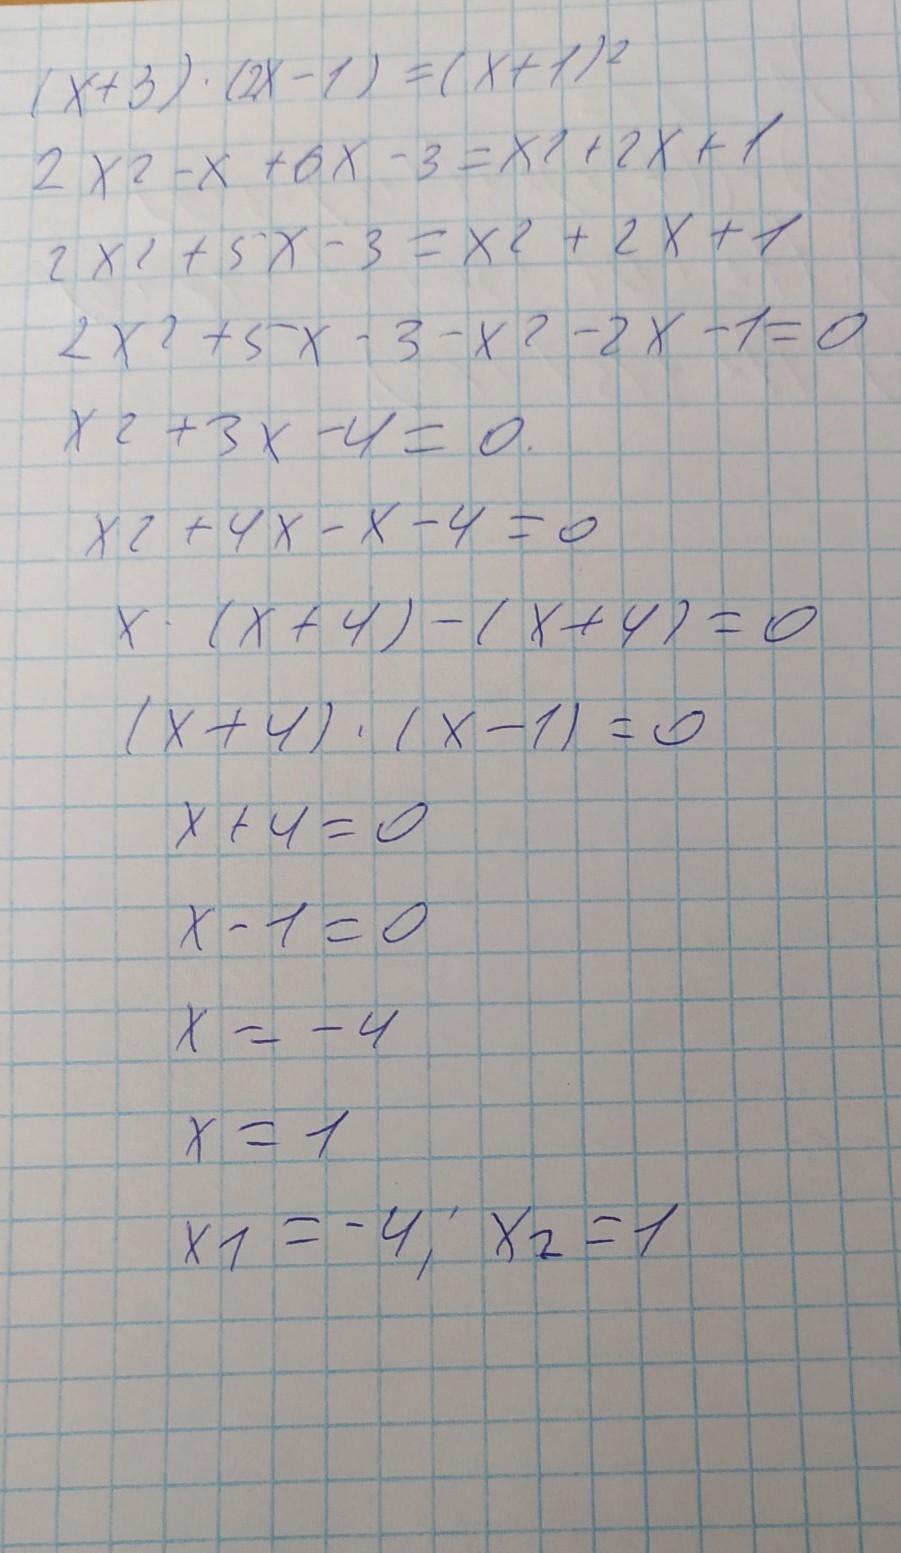 (x+3)·(2x-1)=(x+1)²
2x²-x+6x-3=x²+2x+1
2x²+5x-3=x²+2x+1
2x²+5x-3-x²-2x-1=0
x²+3x-4=0.
x²+4x-x-4=0
x·(x+4)-(x+4)=0
(x+4)·(x-1)=0
x+4=0
x-1=0
x=-4
x=1
x1=-4; x2=1